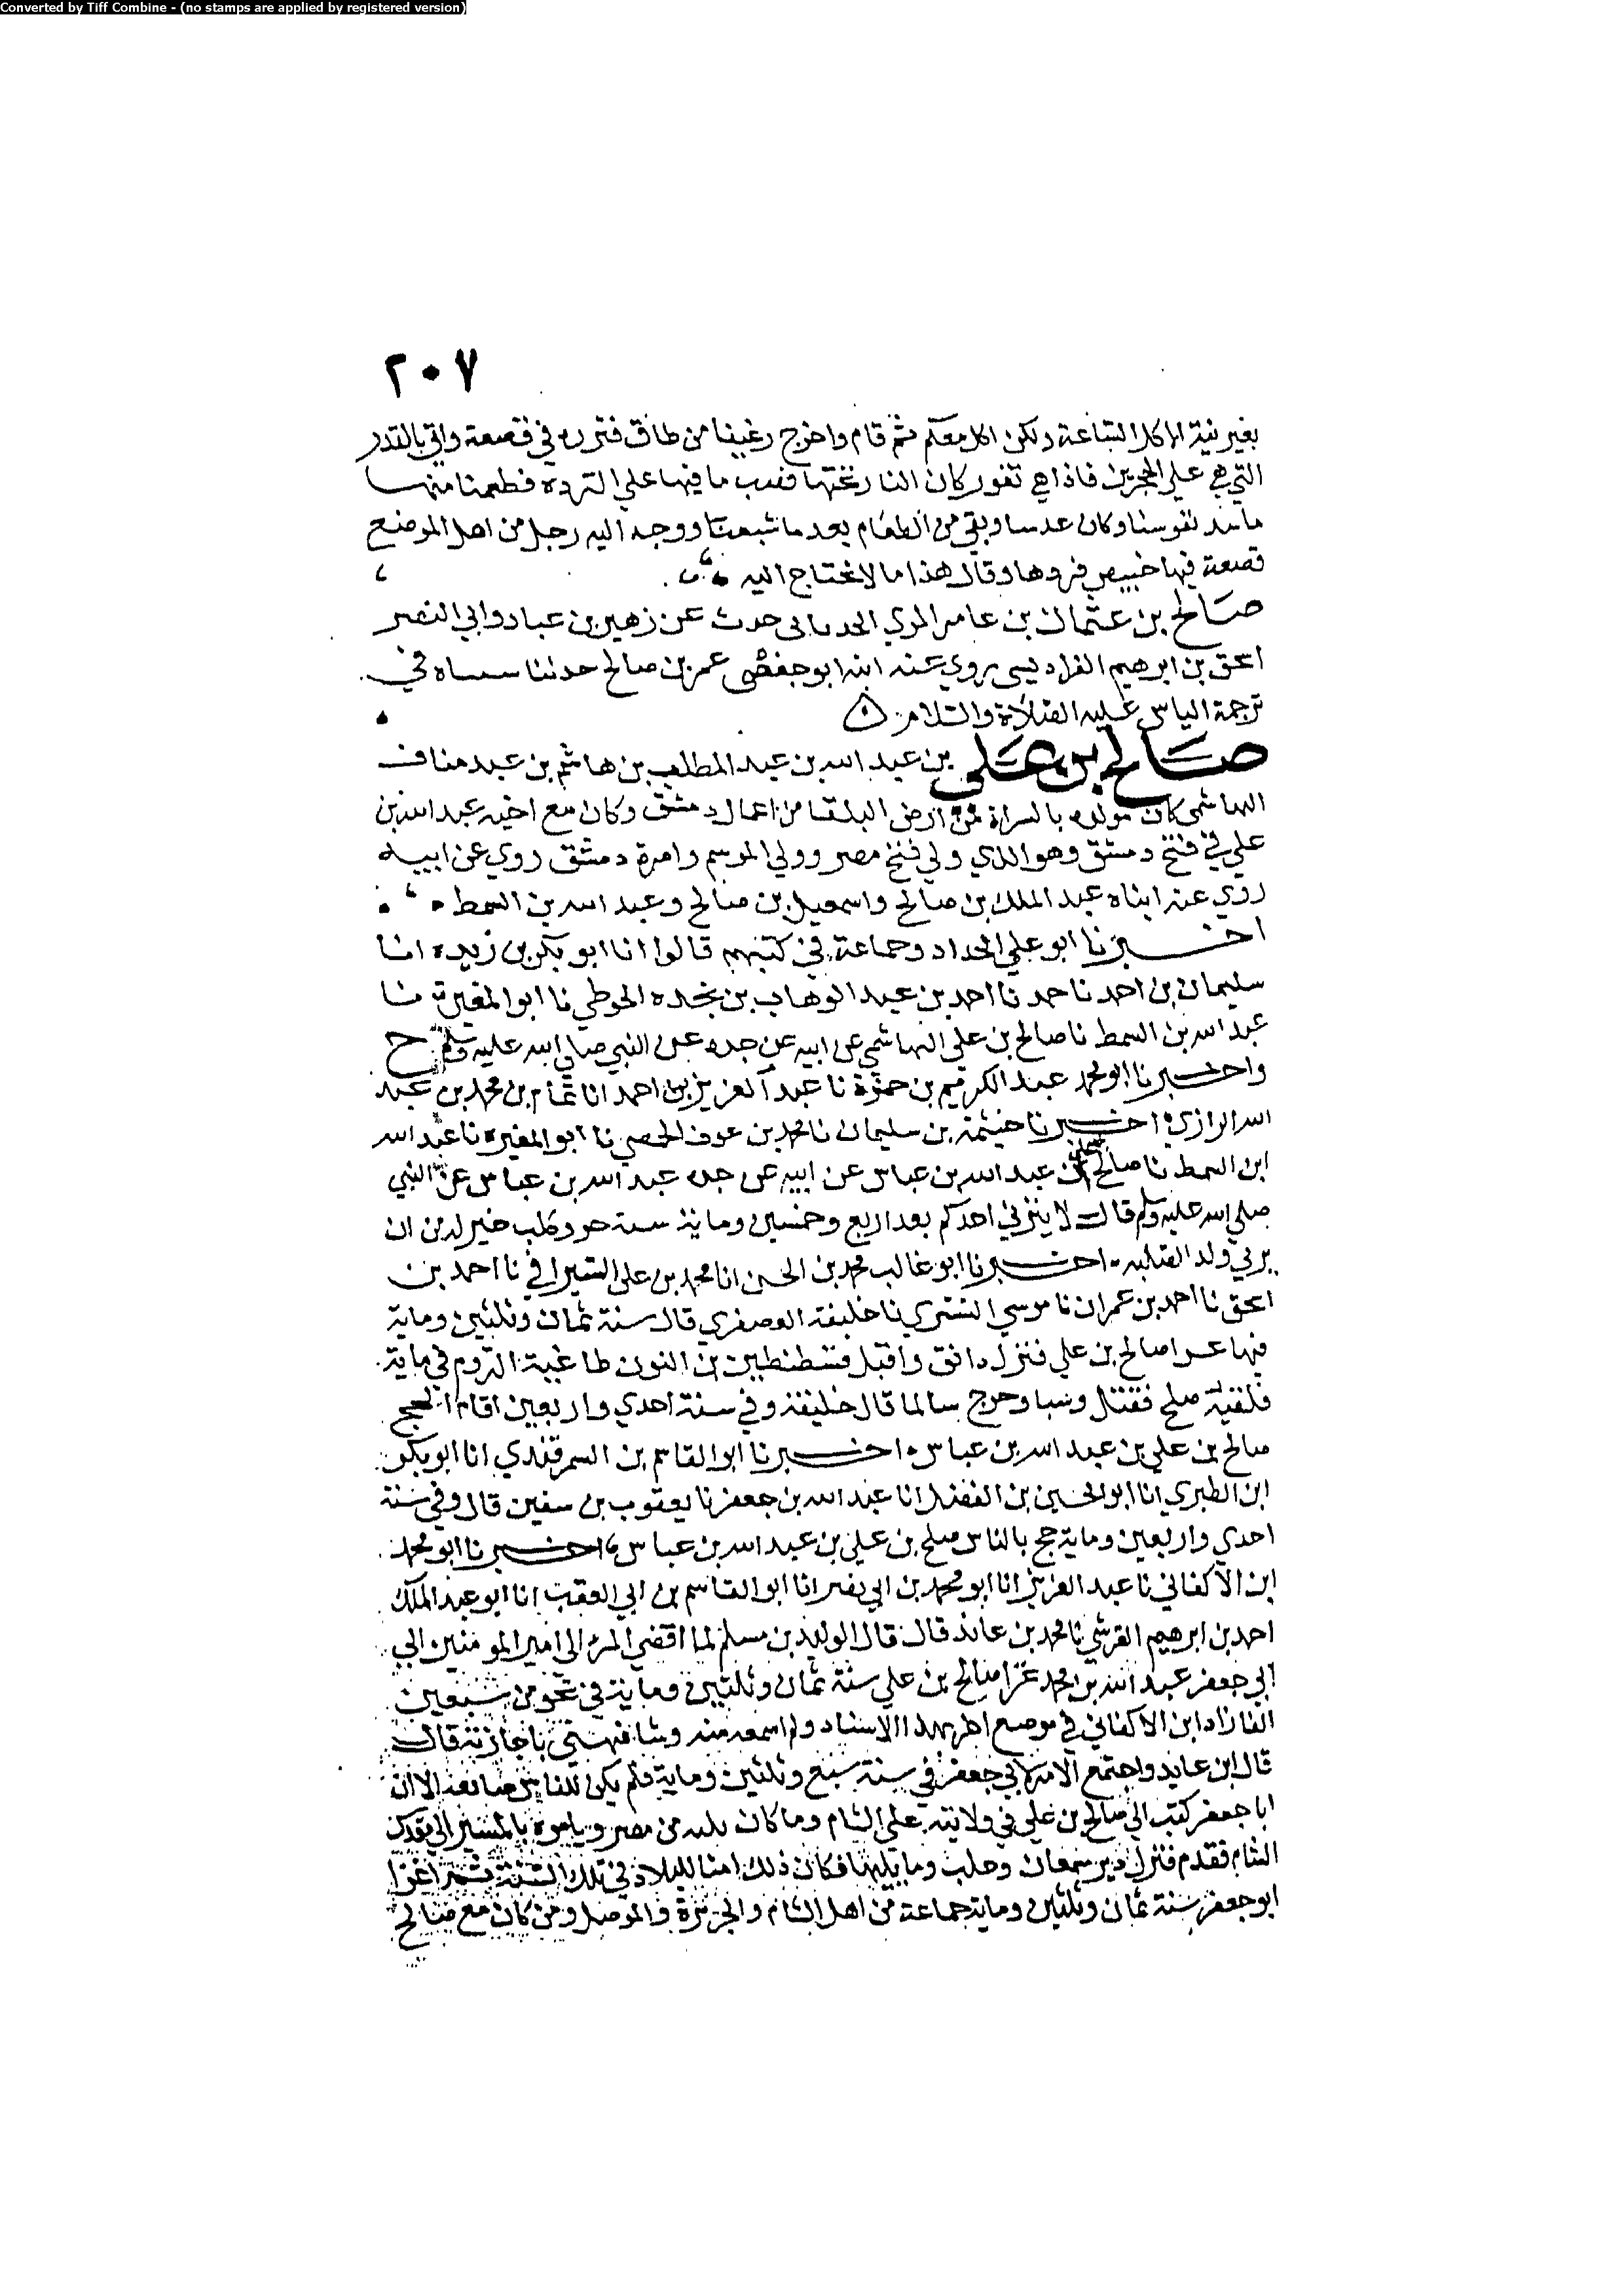 Converted by Tiff Combine - (no stamps are applied by registered version)
٢٠٧
بغير نية الاكل الساعة ولكن اكل معكم ثم قام واخرج رغيفا من طاق فثرده في قصعة واتى بالقدر
التي هي على الحجرين فاذا هي تفور كان النار تحتها فصب ما فيها على الثردة فطعمنا منها
نفوسنا وكان عدسا وبقي من الطعام بعد ما شبعنا ووجه اليه رجل من اهل الموضع
قصعة فيها خبيص فردها وقال هذا ما لا نحتاج اليه
صالح بن عثمان بن عامر المري حدث عن زهير بن عباد وابي النضر
اسحق بن ابرهيم الفراديسي روي عنه ابنه ابو حفص عمر بن صالح حدثنا في
ترجمة الياس عليه الصلاة والسلام
صالح بن علي بن عبد الله بن عبد المطلب بن هاشم بن عبد مناف
الهاشمي كان مولده بالسراة من ارض البلقا من اعمال دمشق وكان مع اخيه عبد الله بن
علي في فتح دمشق وهو الذي ولي فتح مصر وولي الموسم وامرة دمشق روي عن ابيه
روي عنه ابناه عبد الملك بن صالح واسمعيل بن صالح وعبد الله بن السمط
اخبرنا ابو علي الحداد وجماعة في كتبهم قالوا انا ابو بكر بن ريده انا
سليمان بن احمد نا احمد بن عبد الوهاب بن نجده الحوطي نا ابو المغيرة نا
عبد الله بن السمط نا صالح بن علي الهاشمي عن ابيه عن جده عن النبي صلى الله عليه وسلم ح
واخبرنا ابو محمد عبد الكريم بن حمزة نا عبد العزيز بن احمد انا تمام بن محمد بن عبد
الله الرازي اخبرنا خيثمة بن سليمان نا محمد بن عوف الحمصي نا ابو المغيره نا عبد الله
ابن السمط نا صالح بن علي بن عبد الله بن عباس عن ابيه عن جده عبد الله بن عباس عن النبي
صلى الله عليه وسلم قال لا يربي احدكم بعد اربع وخمسين ومايه سنة جرو كلب خير له من ان
يربي ولد لصلبه اخبرنا ابو غالب محمد بن الحسن انا محمد بن علي السيرافي نا احمد بن
اسحق نا احمد بن عمران نا موسي التستري نا خليفة العصفري قال سنة ثمان وثلثين وماية
فيها غزا صالح بن علي فنزل دابق واقبل قسطنطين بن اليون طاغية الروم في ماية
فلقيه صلح فقتل وسبا وخرج سالما قال خليفة وفي سنة احدي واربعين اقام الحج
صالح بن علي بن عبد الله بن عباس اخبرنا ابو القاسم بن السمرقندي انا ابو بكر
ابن الطبري انا ابو الحسين بن الفضل انا عبد الله بن جعفر نا يعقوب بن سفين قال وفي سنة
احدي واربعين وماية حج بالناس صلح بن علي بن عبد الله بن عباس اخبرنا ابو محمد
ابن الاكفاني نا عبد العزيز انا ابو محمد بن ابي نصر انا ابو القاسم بن ابي العقب انا ابو عبد الملك
احمد بن ابرهيم القرشي نا محمد بن عائذ قال قال الوليد بن مسلم لما افضي الامر الى امير المومنين ابي
ابي جعفر عبد الله بن محمد غزا صالح بن علي سنة ثمان وثلثين وماية في نحو من سبعين
الفا زاد ابن الاكفاني في موضع اخر بهذا الاسناد ولم اسمعه منه وشافهني باجازته قال
قال ابن عايذ واجتمع الامر لابي جعفر في سنة سبع وثلثين وماية فلم يكن للناس صايفه الا ان
ابا جعفر كتب الي صالح بن علي في ولايته على الشام وما كان يليه من مصر ويامره بالمسير الي
الشام فقدم فنزل دير سمعان وحلب وما يليها فكان ذلك امنا للبلاد في تلك السنة ثم اغزا
ابو جعفر سنة ثمان وثلثين وماية جماعة من اهل الشام والجزيرة والموصل ومن كان مع صالح